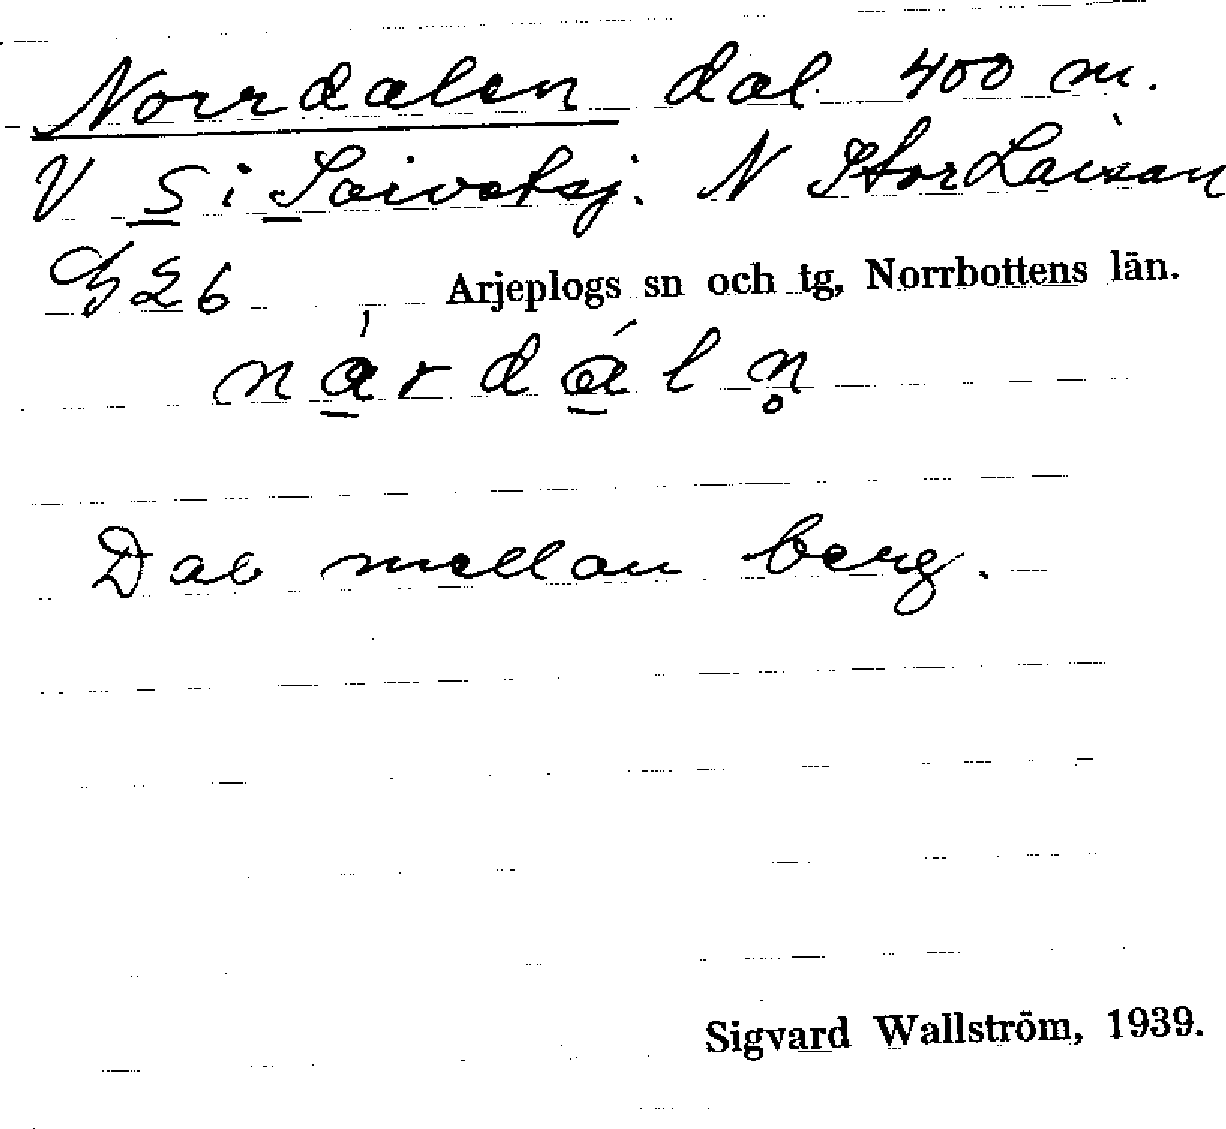 Norrdalen dal. 400 m.
V S i Saivatsj. N StorLaisan
G26 Arjeplogs sn och tg, Norrbottens län.
na̲rda̲ln̥
Dal mellan berg.
Sigvard Wallström, 1939.